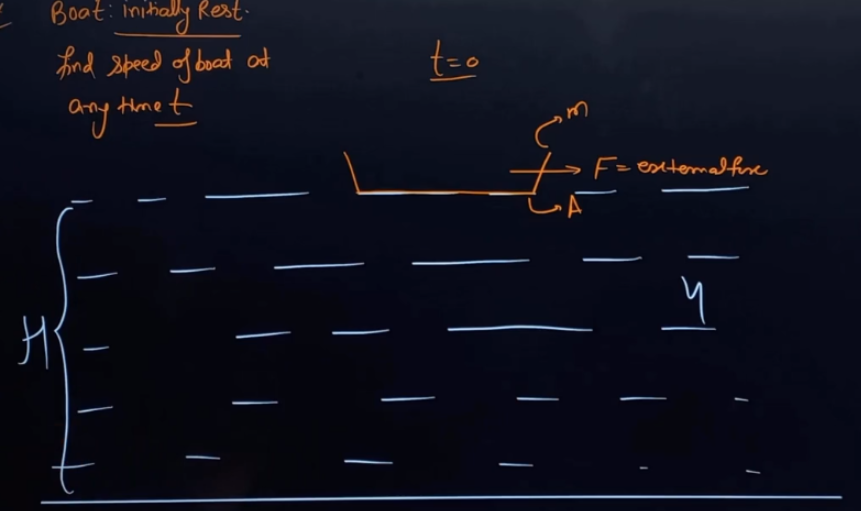 Boat: initially Rest.
find speed of boat at
any time t
t=0
m
F = external force
A
η
H